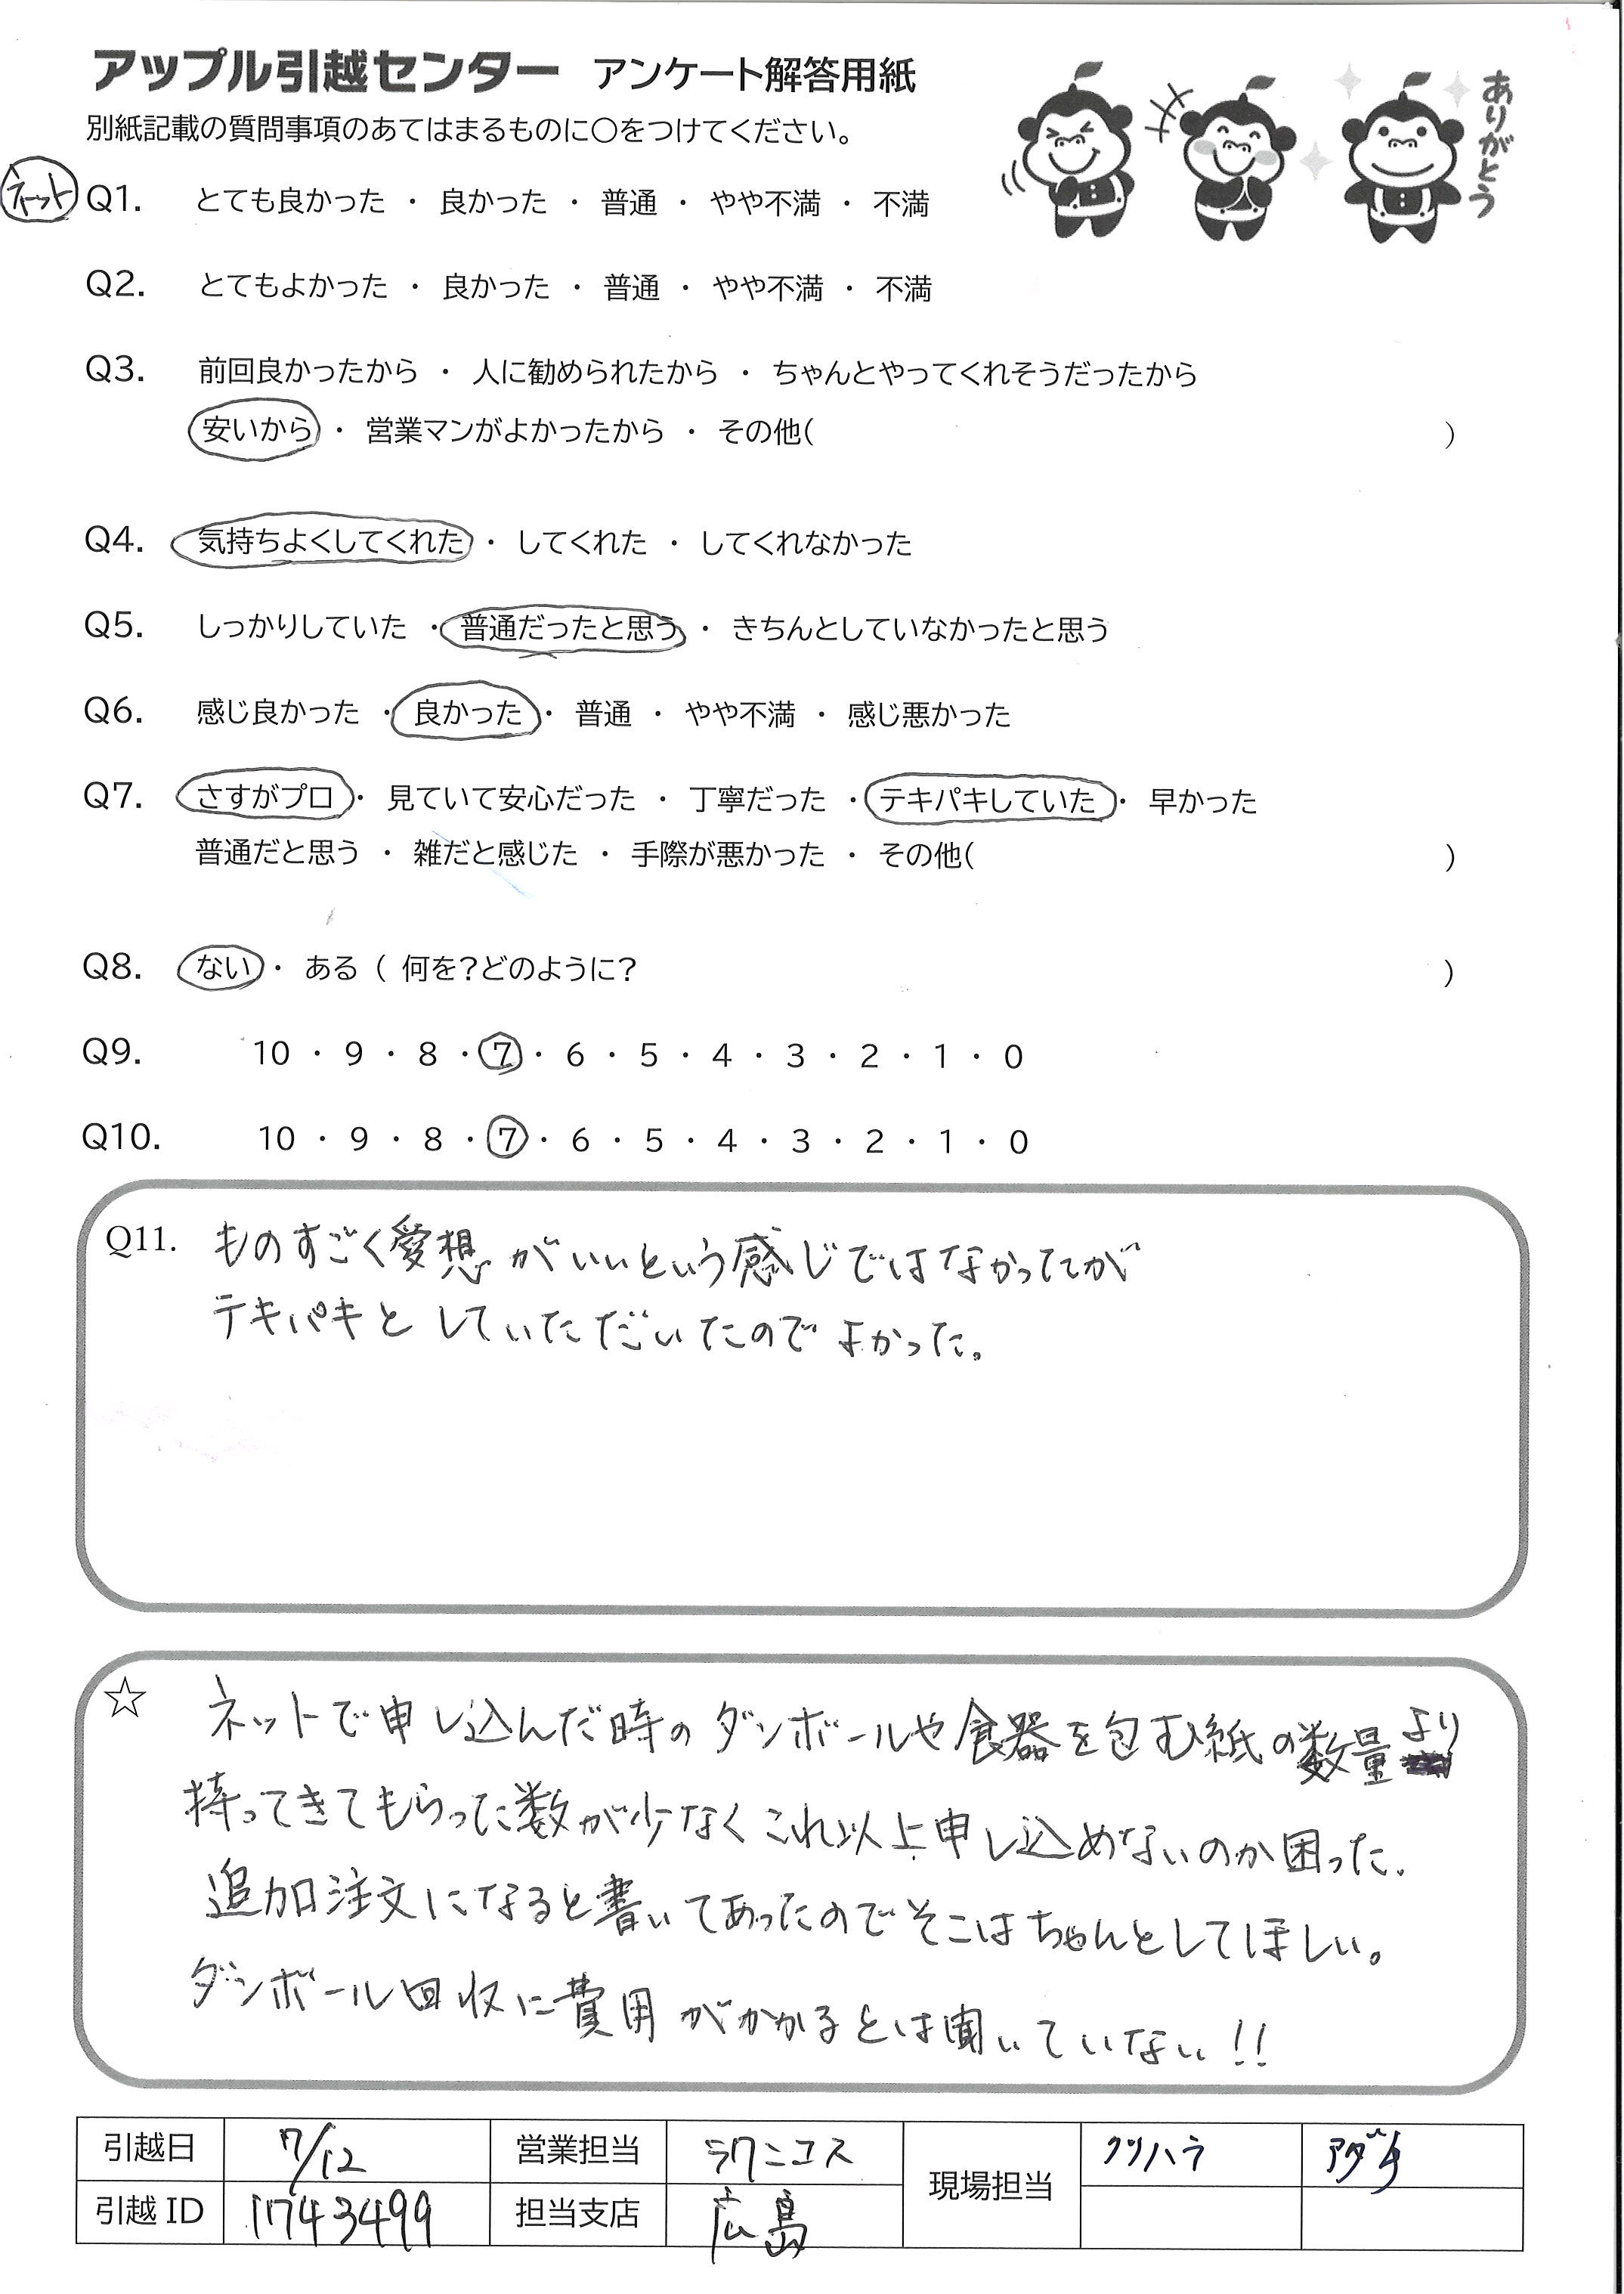 アップル引越センター アンケート解答用紙
別紙記載の質問事項のあてはまるものに○をつけてください。
ありがとう
ネット
Q1. とても良かった ・ 良かった ・ 普通 ・ やや不満 ・ 不満
Q2. とてもよかった ・ 良かった ・ 普通 ・ やや不満 ・ 不満
Q3. 前回良かったから ・ 人に勧められたから ・ ちゃんとやってくれそうだったから
安いから ・ 営業マンがよかったから ・ その他( )
Q4. 気持ちよくしてくれた ・ してくれた ・ してくれなかった
Q5. しっかりしていた ・ 普通だったと思う ・ きちんとしていなかったと思う
Q6. 感じ良かった ・ 良かった ・ 普通 ・ やや不満 ・ 感じ悪かった
Q7. さすがプロ ・ 見ていて安心だった ・ 丁寧だった ・ テキパキしていた ・ 早かった
普通だと思う ・ 雑だと感じた ・ 手際が悪かった ・ その他( )
Q8. ない ・ ある ( 何を?どのように? )
Q9. 10 ・ 9 ・ 8 ・ 7 ・ 6 ・ 5 ・ 4 ・ 3 ・ 2 ・ 1 ・ 0
Q10. 10 ・ 9 ・ 8 ・ 7 ・ 6 ・ 5 ・ 4 ・ 3 ・ 2 ・ 1 ・ 0
Q11. ものすごく愛想がいいという感じではなかってが
テキパキとしていただいたのでよかった。
☆ ネットで申し込んだ時のダンボールや食器を包む紙の数量より
持ってきてもらった数が少なくこれ以上申し込めないのか困った.
追加注文になると書いてあったのでそこはちゃんとしてほしい。
ダンボール回収に費用がかかるとは聞いていない!!
引越日 7/12 営業担当 ラクニコス 現場担当 クリハラ アダチ
引越ID 1743499 担当支店 広島